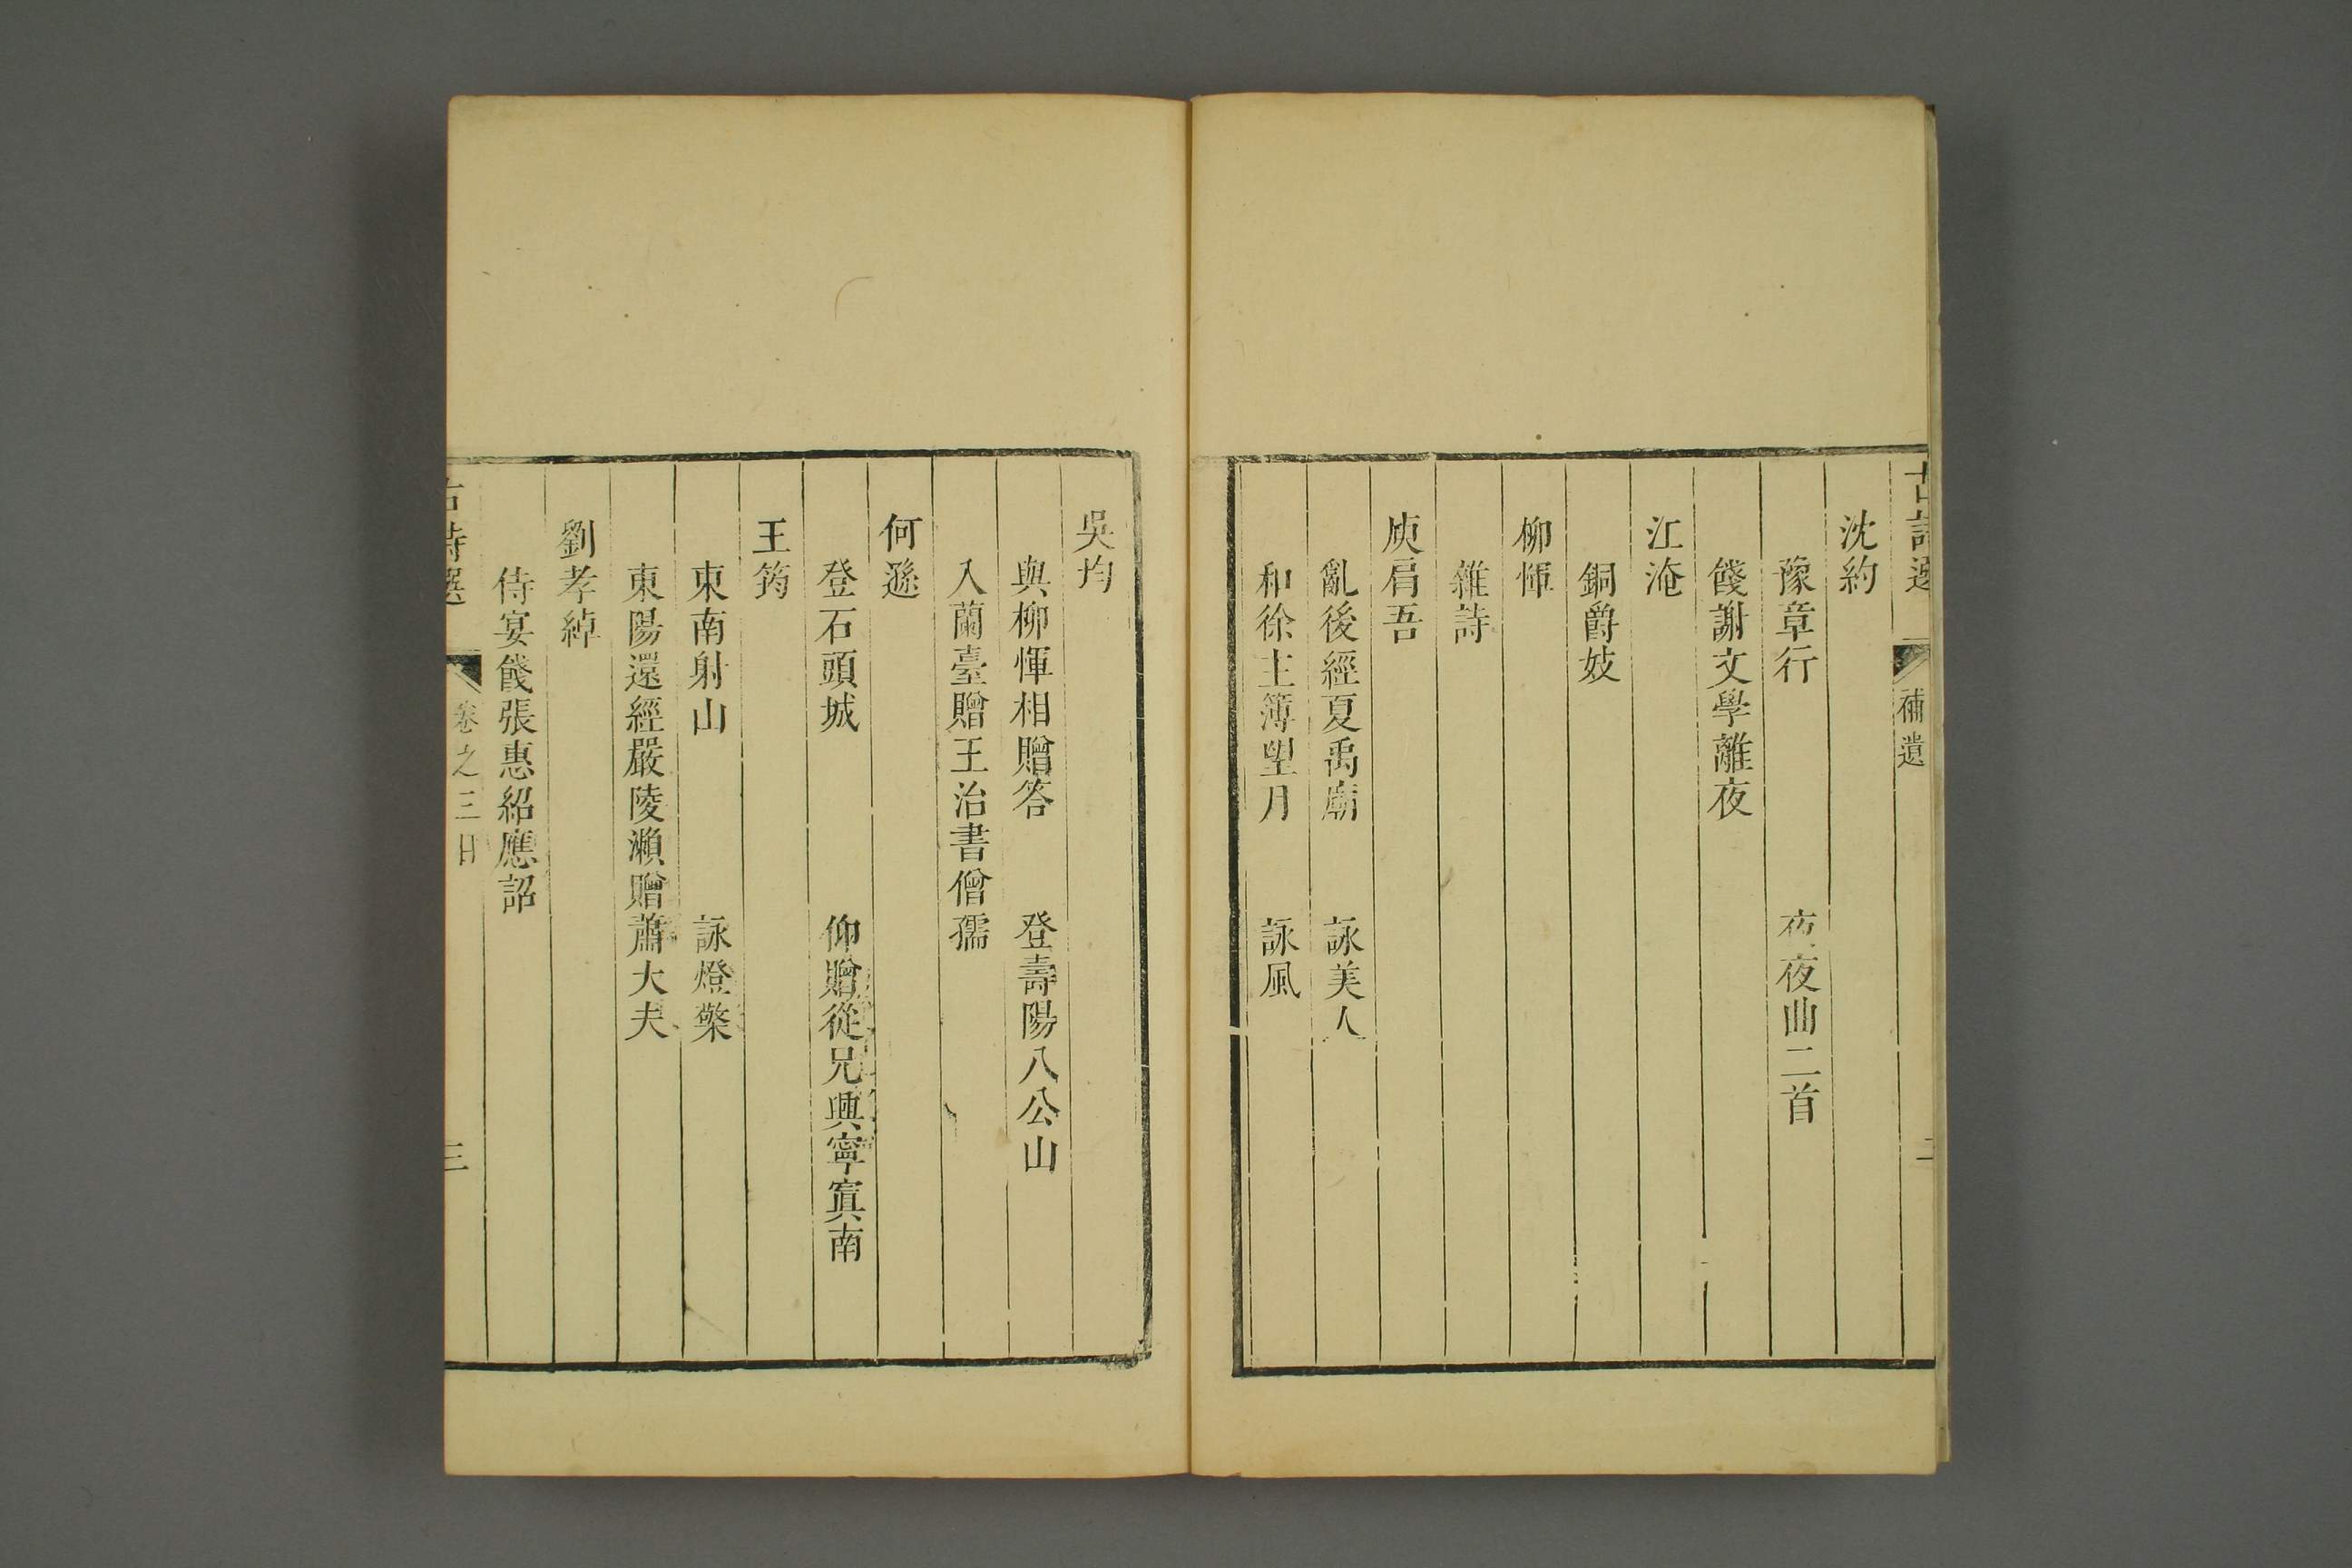 古詩選 補遺 二
沈約
豫章行 夜夜曲二首
餞謝文學離夜
江淹
銅爵妓
柳惲
雜詩
庾肩吾
亂後經夏禹廟 詠美人
和徐主簿望月 詠風
吳均
與柳惲相贈答 登壽陽八公山
入蘭臺贈王治書僧孺
何遜
登石頭城 仰贈從兄興寧寘南
王筠
東南射山 詠燈檠
東陽還經嚴陵瀨贈蕭大夫
劉孝綽
侍宴餞張惠紹應詔
古詩選 卷之三目 三